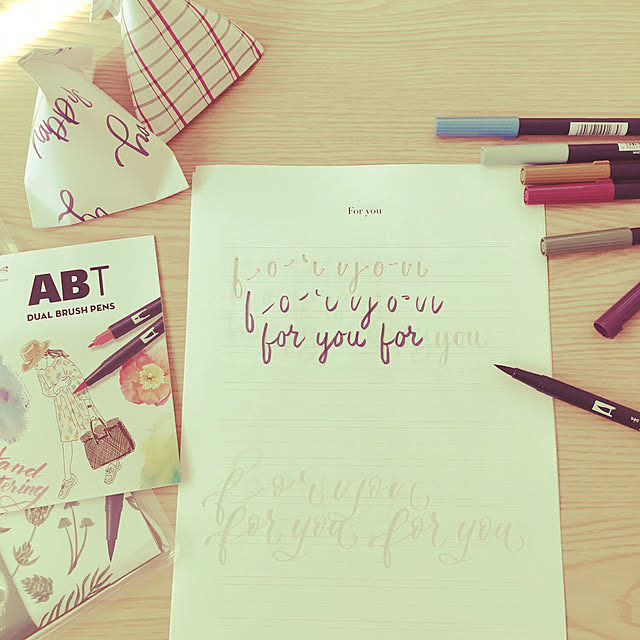 happy
For you
f o r y o u
f o r y o u
for you for you
ABT
DUAL BRUSH PENS
Hand
lettering
for you
for you for you